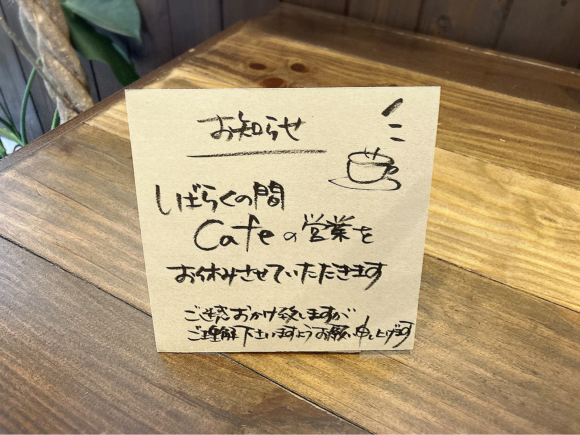 お知らせ
しばらくの間
Cafeの営業を
お休みさせていただきます
ご迷惑おかけ致しますが
ご理解下さいますようお願い申し上げます